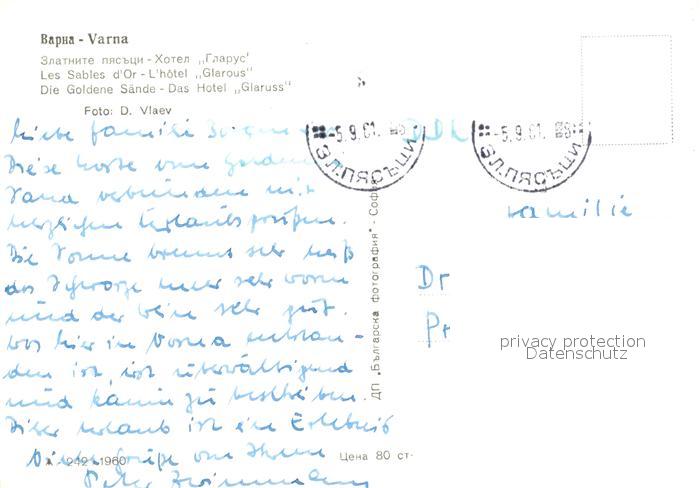 Варна - Varna
Златните пясъци - Хотел „Гларус"
Les Sables d'Or - L'hôtel „Glarous"
Die Goldene Sände - Das Hotel „Glaruss"
Foto: D. Vlaev
Liebe Familie
-5.9.61. 8
ЗЛ.ПЯСЪЦИ
DDR
-5.9.61. 8
ЗЛ.ПЯСЪЦИ
Diese Karte vom Golden
Sand verbunden mit
herzlichen Urlaubsgrüßen.
Die Sonne brennt sehr heiß
das Schwarze Meer sehr warm
und der Wein sehr gut.
Was hier in Varna entstan-
den ist, ist überwältigend
und kaum zu beschreiben.
Dieser Urlaub ist ein Erlebnis
Liebe Grüße von Ihrem
Peter
Familie
Dr
Pr
privacy protection
Datenschutz
ДП „Българска фотография" - София
А - 242 - 1960
Цена 80 ст.